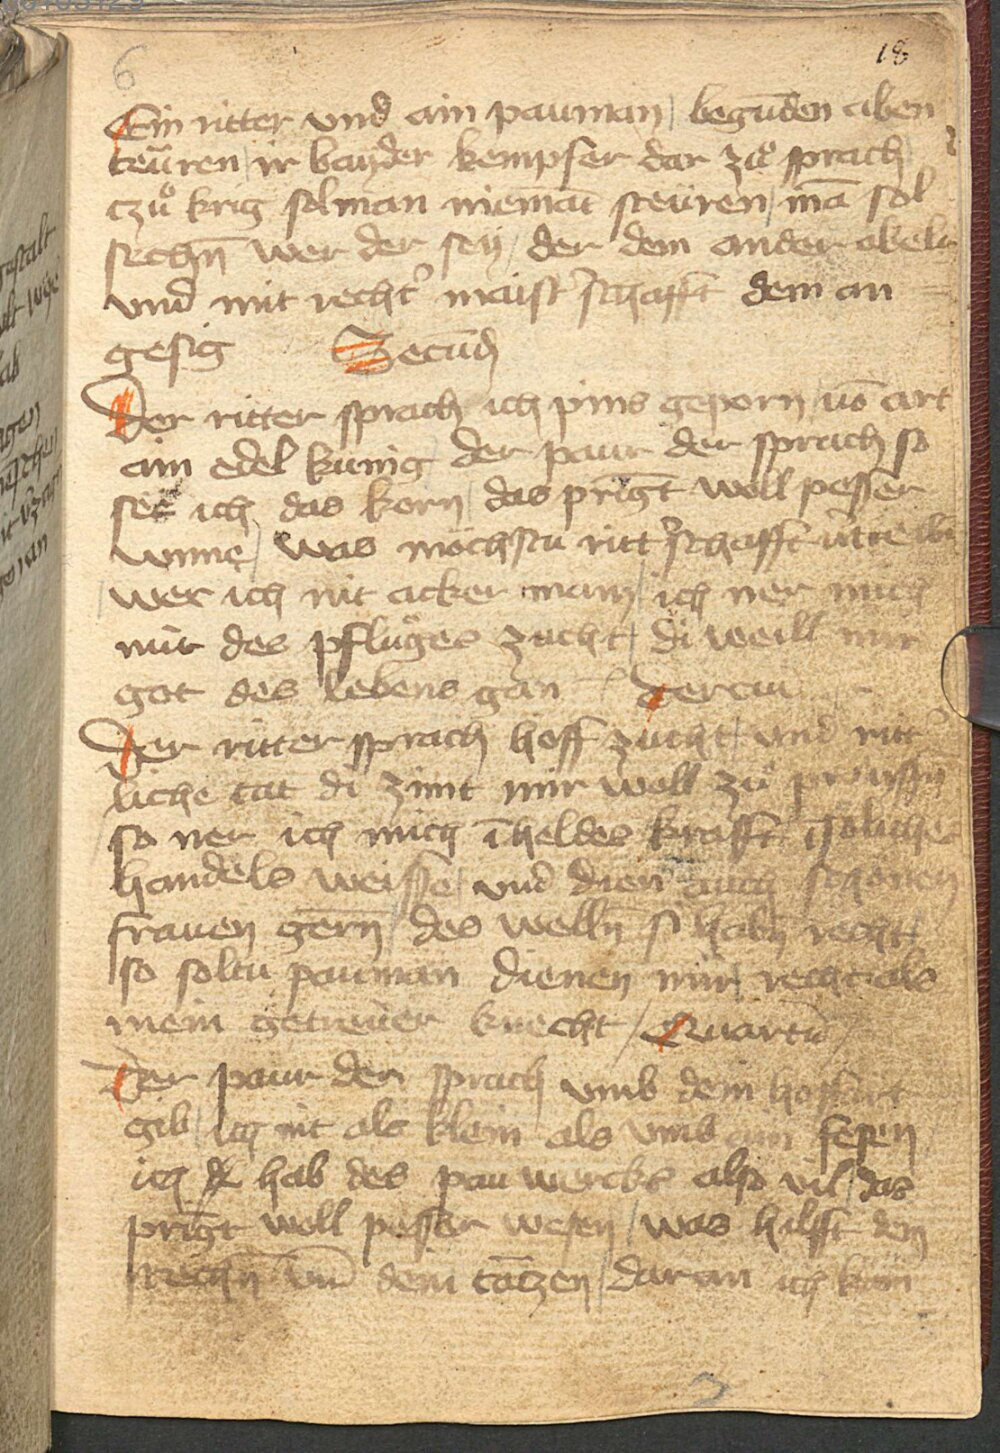 6 18
Ein ritter und ain pauman / begūden aben
teüren / ir bayder kempfer dar zuͦ sprach
czuͦ krig sol man niemāt steüren / mā sol
sechn̄ wer der seÿ / der dem ander abela
und mit recht' maist'schafft dem an
gesig Secūdj
Der ritter sprach ich pins geporn / vō art
ain edel kunig der paur der sprach so
see ich das korn / das prīgt woll pesser
winne / was möchstu ritt'schafft
wer ich nit acker man / ich ner mich
mit des pfluges zucht / di weill mir
got des lebens gan Terciu
Der ritter sprach hoff zucht / und ritt'
liche tat di zimt mir woll zuͦ
so ner ich mich ī heldes krafft / ī sölicher
handels weisse / und dien auch schönen
frauen gern / des welln̄ si habn recht
so soltu pauman dienen mir / recht als
mein getreüer knecht / Quartū
Der paur der sprach umb dein hoffart
gib / ich nit als klein als umb ain fesen
ich hab des pau wercks also vil / das
prīgt woll pesser wesen / was hilfft dein
stechn̄ un̄ dein tāczen / daran ich kain